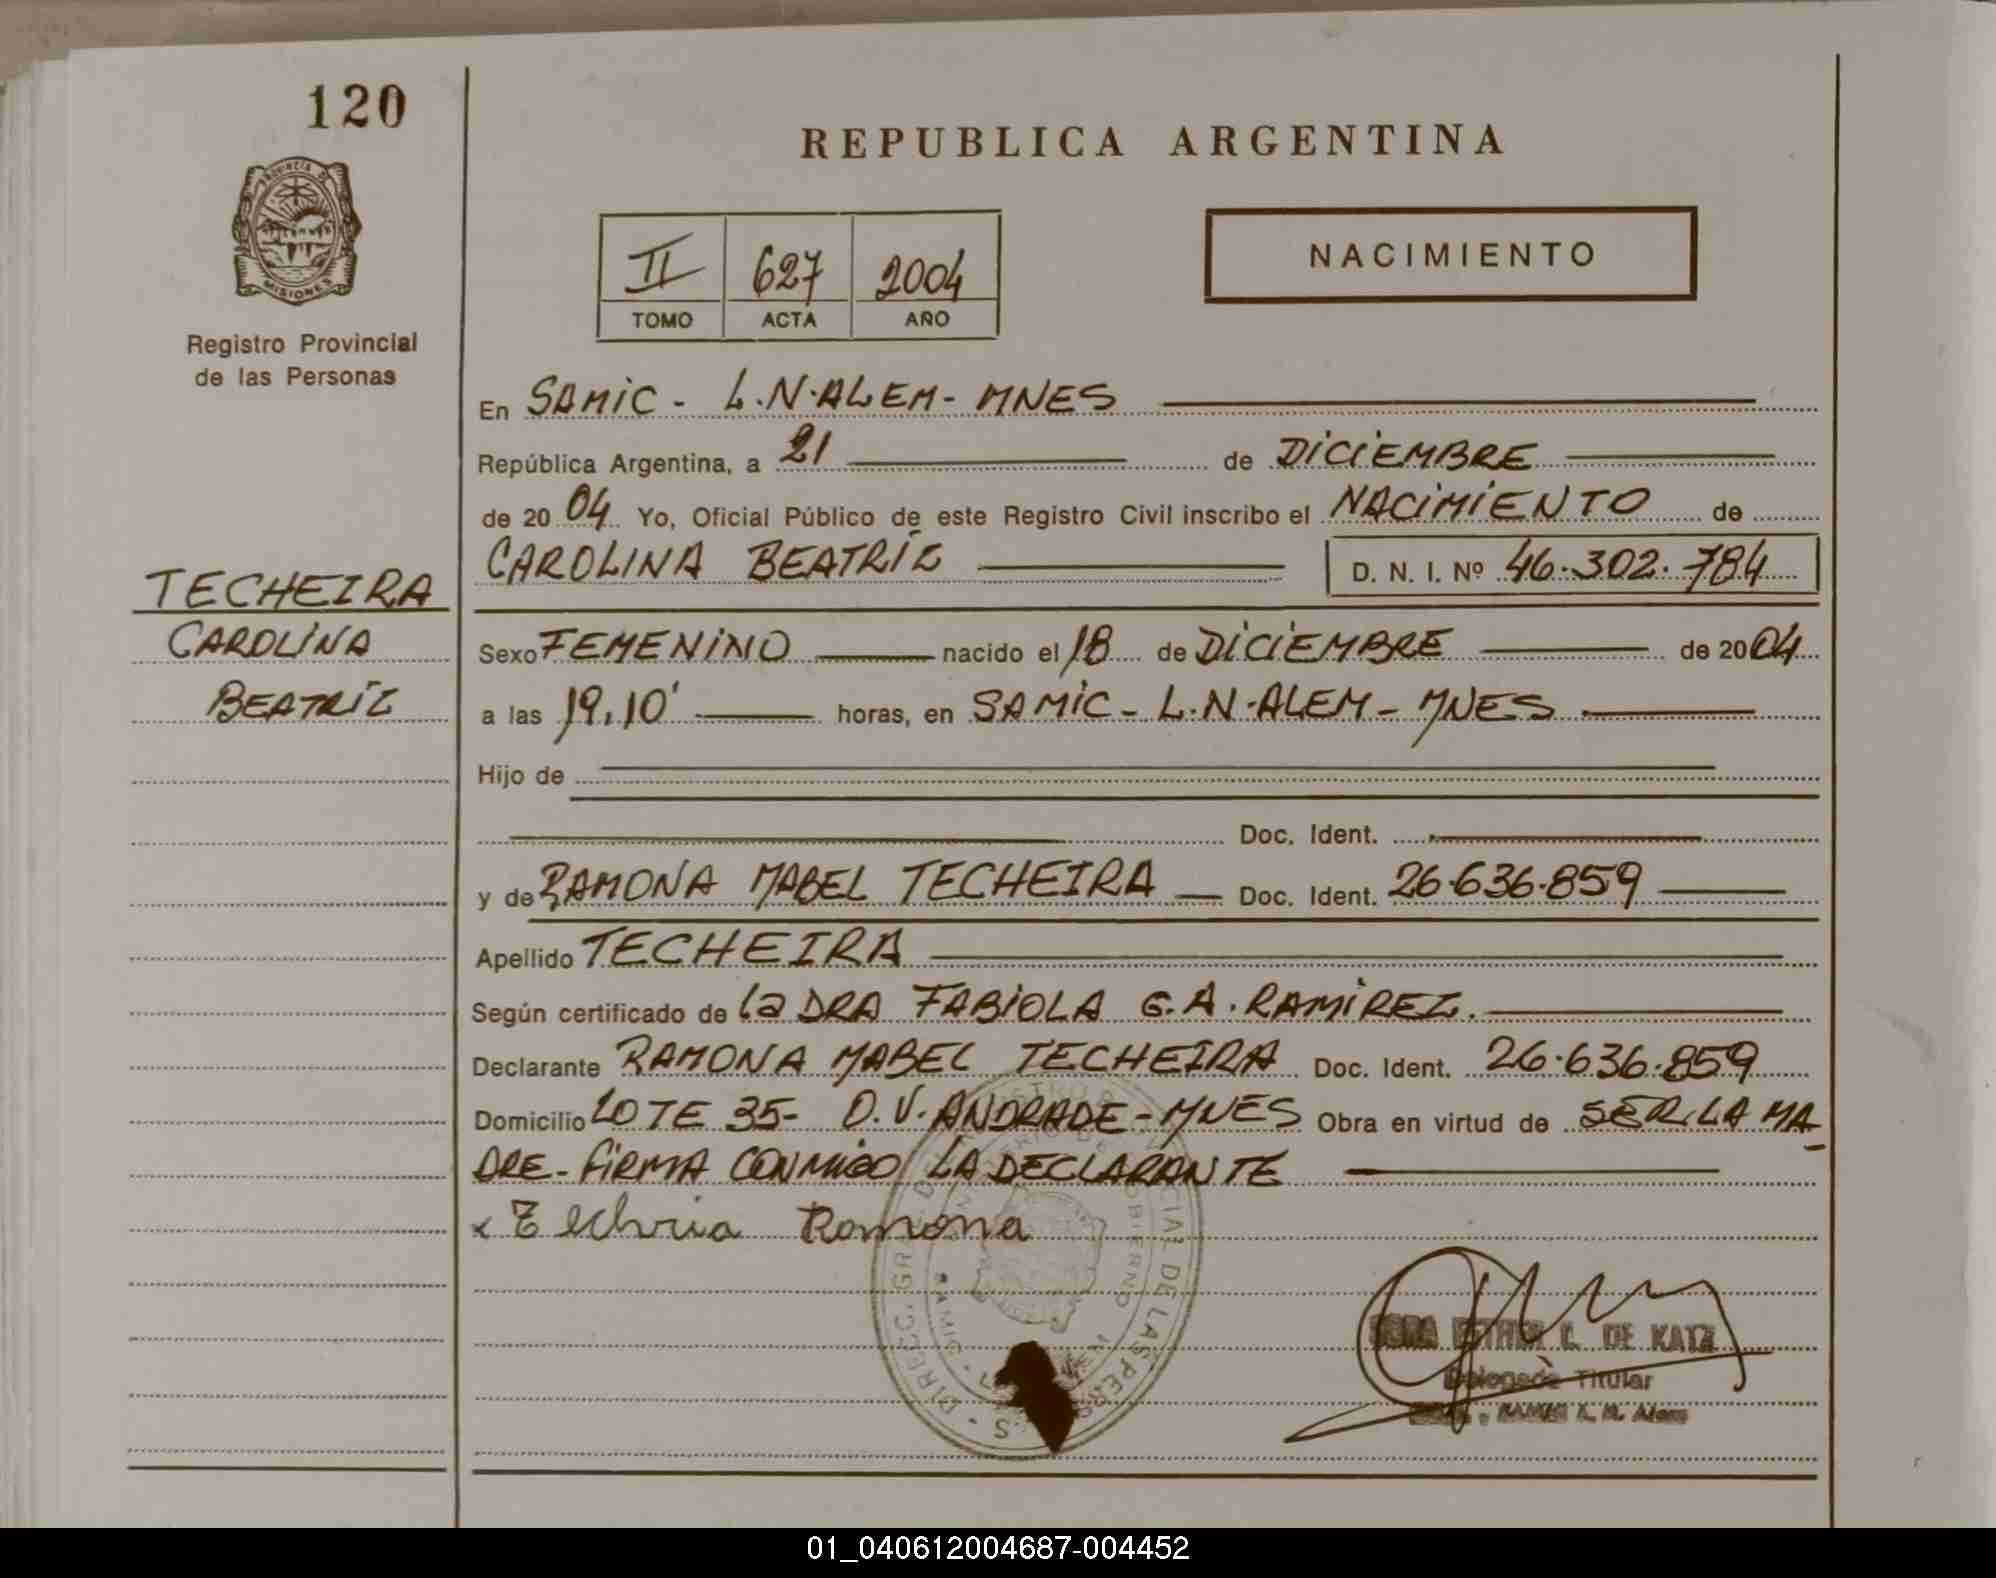 120
REPUBLICA ARGENTINA
PROVINCIA DE
MISIONES
Registro Provincial
de las Personas
II 627 2004
TOMO ACTA AÑO
NACIMIENTO
En SAMIC - L.N.ALEM - MNES
República Argentina, a 21 de DICIEMBRE
de 20 04 Yo, Oficial Público de este Registro Civil inscribo el NACIMIENTO de
CAROLINA BEATRIZ D. N. I. Nº 46.302.784
TECHEIRA
CAROLINA
BEATRIZ
Sexo FEMENINO nacido el 18 de DICIEMBRE de 20 04
a las 19,10' horas, en SAMIC - L.N.ALEM - MNES
Hijo de
Doc. Ident.
y de RAMONA MABEL TECHEIRA Doc. Ident. 26.636.859
Apellido TECHEIRA
Según certificado de la DRA FABIOLA G.A. RAMIREZ.
Declarante RAMONA MABEL TECHEIRA Doc. Ident. 26.636.859
Domicilio LOTE 35- O.V. ANDRADE - MNES Obra en virtud de SER LA MA-
DRE - FIRMA CONMIGO LA DECLARANTE
x Techria Romona
C. DE KATZ
Delegada Titular
L. N. Alem
01_040612004687-004452